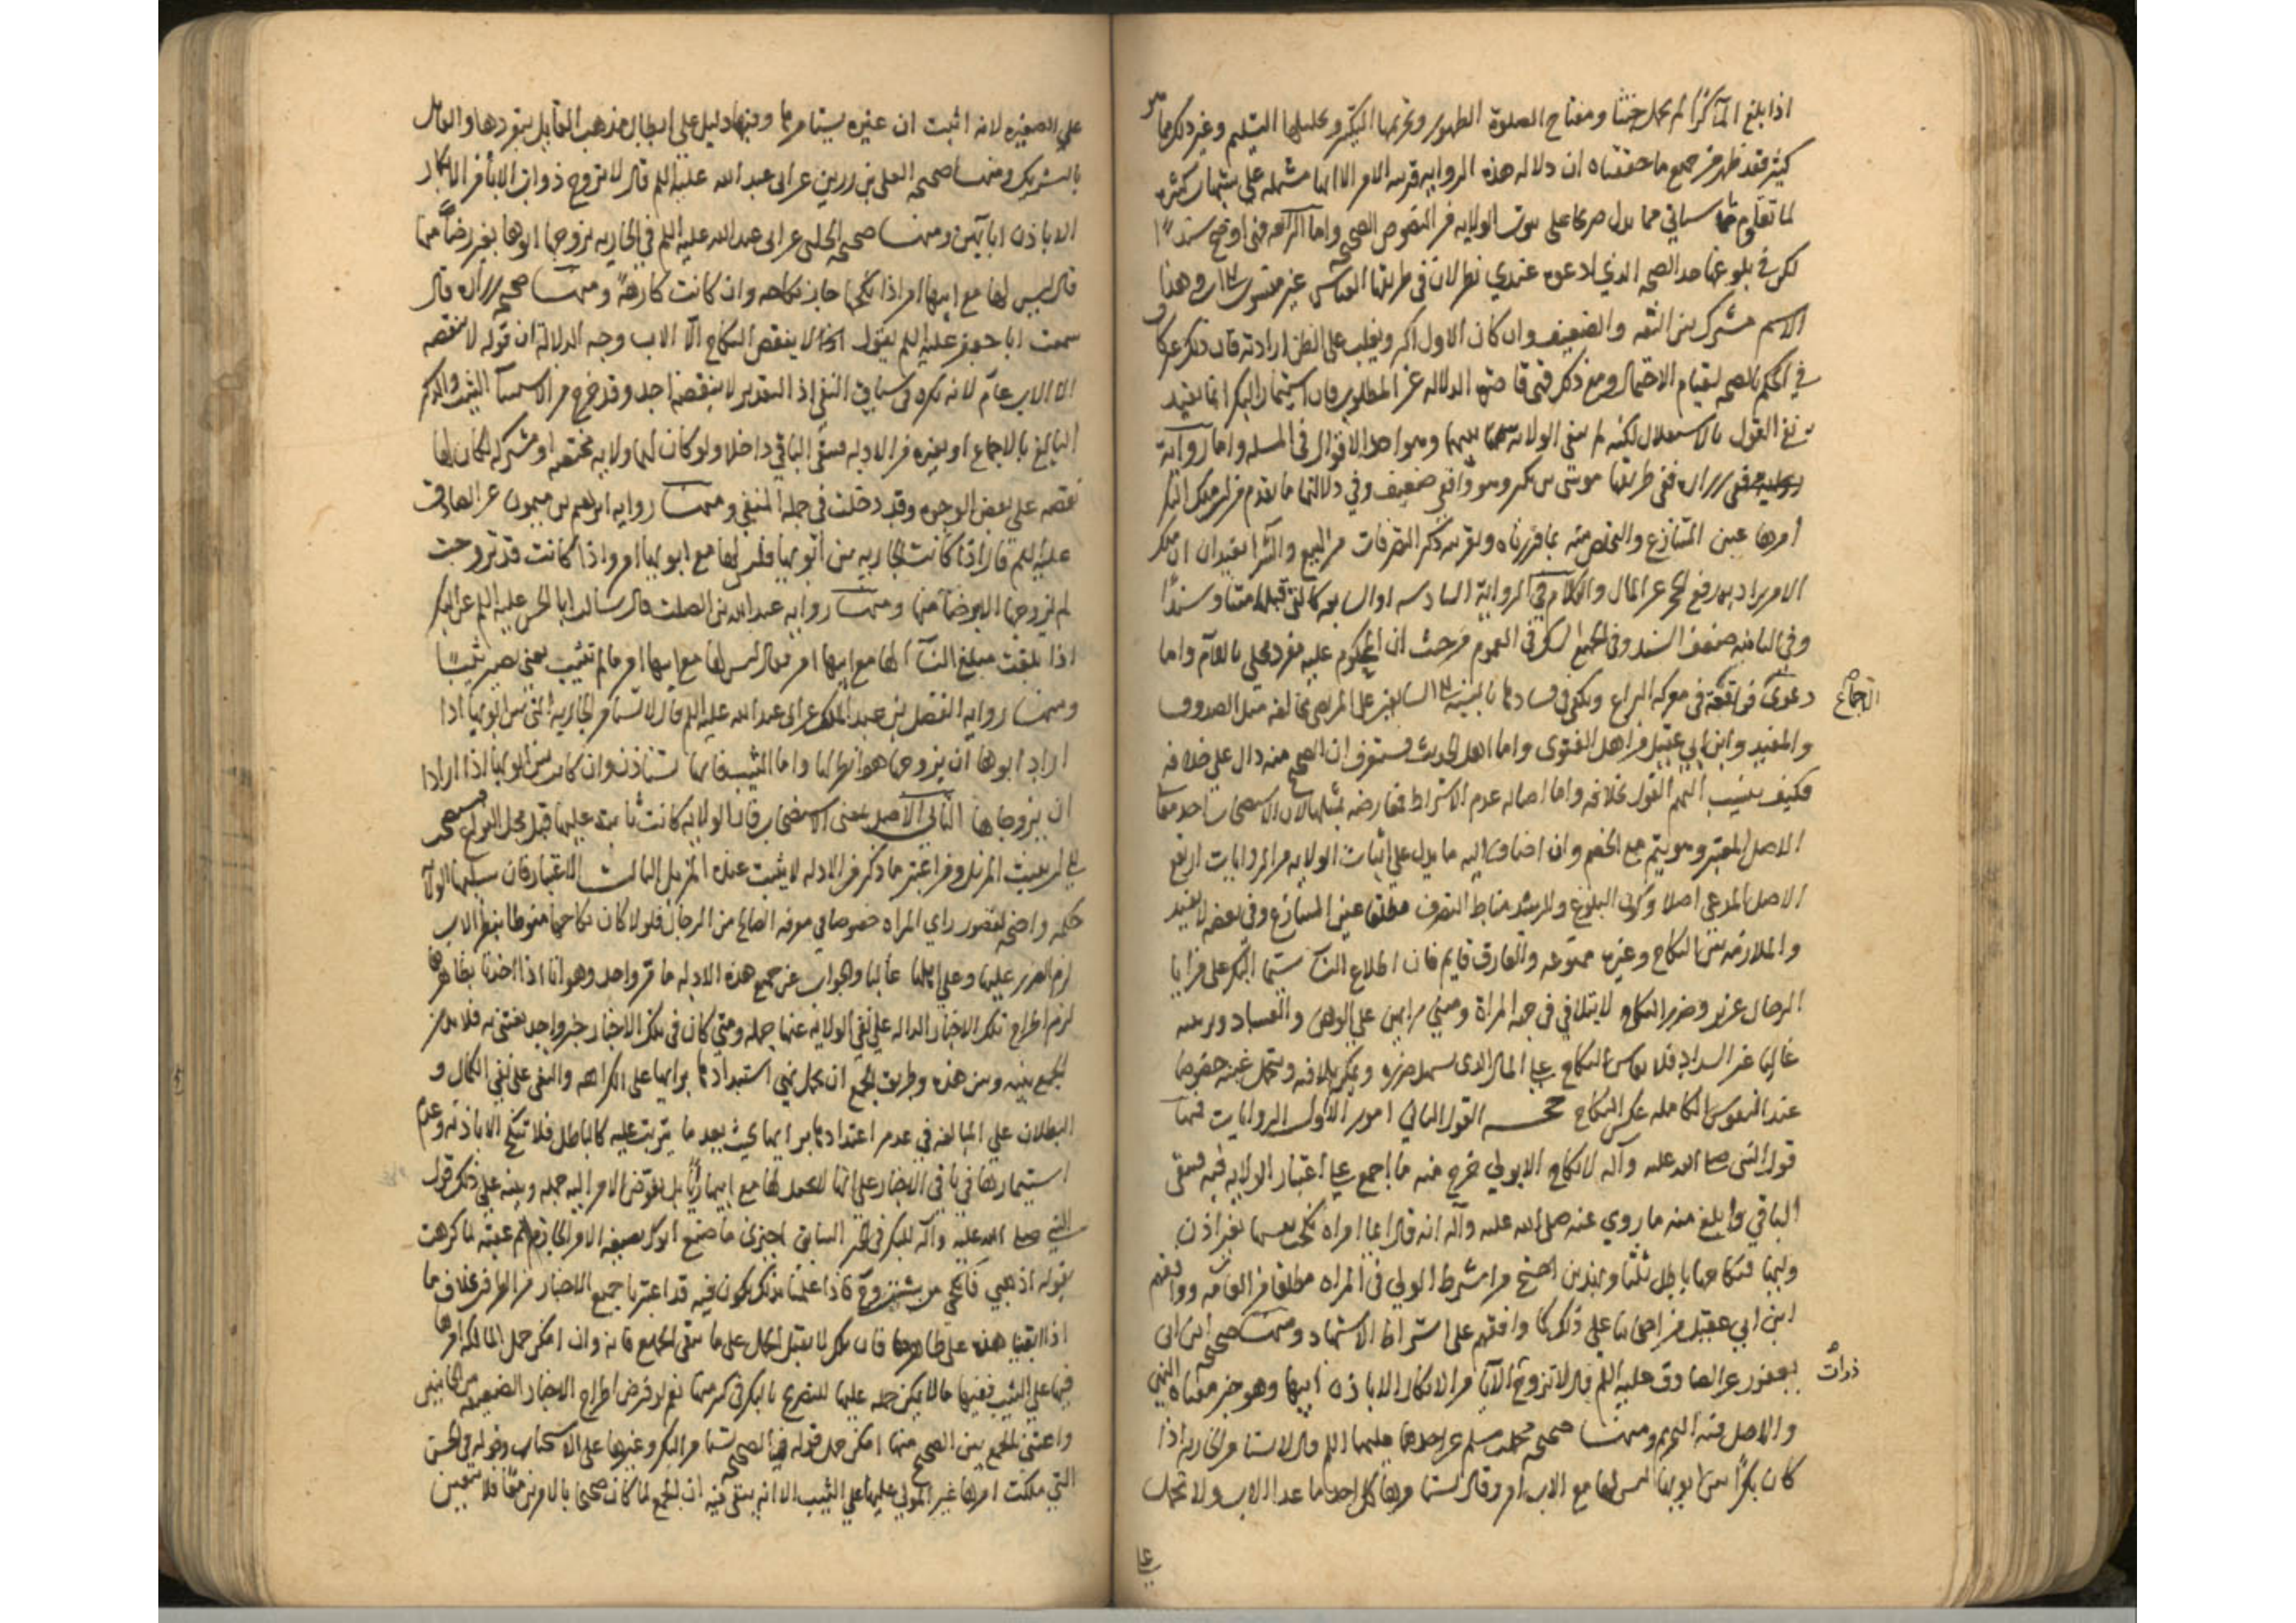 اذا بلغ المآ كرا لم يحمل خبثا ومفتاح الصلوة الطهور وتحريمها التكبير وتحليلها التسليم وغير ذلك مما هو
كثير فقد ظهر من جميع ما حققناه ان دلاله هذه الروايه قريبه الامر الا انها مشتمله على شبهات كثيره
لما تقدم سياتي مما يدل صريحا على ثبوت الولايه من النصوص الصحيحه واما الرابعه فهي اوضح سندا
لكن في بلوغها حد الصحه الذي ادعوه عندي نظر لان في طريقها العباس غير منسوب الى وهذا
الاسم مشترك بين الثقه والضعيف وان كان الاول اكثر ويغلب على الظن ارادته فان ذلك غير كاف
في الحكم بالصحه لقيام الاحتمال ومع ذلك فهي قاصرة الدلاله عن المطلوب فان استيمار البكر انما يفيد
نفي القول بالاستقلال لكنه لم ينفى الولايه بينهما وهو احد الاقوال في المسله واما رواية
زراره ففي طريقها موسى بن بكر وهو واقفي ضعيف وفي دلالتها ما تقدم من ان ملك البكر
امرها عين المتنازع والتخلص منه بما قررناه وبقرينه ذكر التصرفات من البيع والشرا يفيد ان ملك
الامر يراد به رفع الحجر عن المال والكلام في الرواية السادسه او السابعه كالتي قبلها متنا وسندا
وفي الثامنه ضعف السند وفي الجميع الشك في العموم من حيث ان المحكوم عليه مفرد محلي باللام واما
دعوى الاجماع فواقعة في معركه النزاع ويكفي في فسادها بالنسبة الى السابقين على المرتضى مخالفه مثل الصدوق
والمفيد وابن ابي عقيل من اهل الفتوى واما اهل الحديث فستعرف ان الصحيح منه دال على خلافه
فكيف ينسب اليهم القول بخلافه واما اصاله عدم الاشتراط فمعارضه بمثلها لان الاستصحاب احد معاني
الاصل المعتبر وهو يتم مع الخصم وان اضاف اليه ما يدل على اثبات الولايه من الروايات ارتفع
الاصل المدعي اصلا وكون البلوغ والرشد مناط التصرف مطلقا عين المتنازع وفي بعضه لا يفيد
والملازمه بين النكاح وغيره ممنوعه والفارق قايم فان اطلاع النسآ سيما البكر على خزايا
الرجال عزيز وضرر النكاح لا يتلافى في جهه المراة ومبنى رايهن على الوهن والفساد وبرئيته
غالبا عن السداد فلا يقاس النكاح على المال الذي يسهل ضرره ويمكن تلافيه ويتحمل غبنه خصوصا
عند النفوس الكامله عكس النكاح حجه القول الثاني امور الاول الروايات فمنها
قول النبي صلى الله عليه وآله لا نكاح الا بولي خرج منه ما اجمع على اعتبار الولايه فيه فيبقى
الباقي وابلغ منه ما روي عنه صلى الله عليه وآله انه قال ايما امراه نكحت نفسها بغير اذن
وليها فنكاحها باطل ثلثا وبهذين احتج من اشترط الولي في المراه مطلقا من العامه ووافقهم
ابن ابي عقيل من اصحابنا على ذلك كما وافقهم على اشتراط الاشهاد ومنها صحيحه ابن ابي
يعفور عن الصادق عليه السلم قال لا تزوج ذوات الآبا من الابكار الا باذن ابيها وهو خبر معناه النهي
والاصل فيه التحريم ومنها صحيحه محمد بن مسلم عن احدهما عليهما السلم قال لا تستامر الجاريه اذا
كان بكرا بين ابويها ليس لها مع الاب امر وقال يستامرها كل احد ما عدا الاب ولا تحمل
على
على الصغيره لانه اثبت ان غيره يستامرها وفيها دليل على ابطال مذهب القايل بتفردها والقايل
بالتشريك ومنها صحيحه العلا بن رزين عن ابي عبد الله عليه السلم قال لا تزوج ذوات الابآ من الابكار
الا باذن ابآيهن ومنها صحيحه الحلبي عن ابي عبد الله عليه السلم في الجاريه يزوجها ابوها بغير رضا منها
قال ليس لها مع ابيها امر اذا انكحها جاز نكاحه وان كانت كارهة ومنها صحيحه زراره قال
سمعت ابا جعفر عليه السلم يقول لا ينقض النكاح الا الاب وجه الدلالة ان قوله لا ينقضه
الا الاب عام لانه نكره في سياق النفي اذ التقدير لا ينقضه احد وقد خرج من الاسم الثيب والذكر
البالغ بالاجماع او بغيره من الادله فيبقى الباقي داخلا ولو كان لها ولايه مختصه او مشتركه لكان لها
نقضه على بعض الوجوه وقد دخلت في جملة المنفي ومنها روايه ابراهيم بن ميمون عن الصادق
عليه السلم قال اذا كانت الجاريه بين ابويها فليس لها مع ابويها امر واذا كانت قد تزوجت
لم يزوجها الا برضآ منها ومنها روايه عبد الله بن الصلت قال سالت ابا الحسن عليه السلم عن البكر
اذا بلغت مبلغ النسآ الها مع ابيها امر فقال ليس لها مع ابيها امر ما لم تثيب يعني تصير ثيبا
ومنها روايه الفضل بن عبد الملك عن ابي عبد الله عليه السلم قال لا تستامر الجاريه التي بين ابويها اذا
اراد ابوها ان يزوجها هو انظر لها واما الثيب فانها تستاذن وان كانت بين ابويها اذا ارادا
ان يزوجاها الثاني الاصل بمعنى الاستصحاب فان الولايه كانت ثابته عليها قبل البلوغ فيستصحب
الى ان يثبت المزيل ومن اعتبر ما ذكر من الادله لا يثبت عنده المزيل الثالث الاعتبار فان سلبها الولاية
حكمه واضحه لقصور راي المراه خصوصا في معرفه الصالح من الرجال فلولا كان نكاحها منوطا بنظر الاب
لزم الضرر عليها وعلى اهلها غالبا والجواب عن جميع هذه الادله ما قرر واحد وهو انا اذا اخذنا بظاهرها
لزم اطراح تلك الاخبار الداله على نفي الولايه عنها جمله ومتى كان في تلك الاخبار خبر واحد يعتنى به فلا بد من
الجمع بينه وبين هذه وطريق الجمع ان يحمل نهي استبدادها برايها على الكراهه والنفي على نفي الكمال و
البطلان على المبالغه في عدم اعتدادها برايها بحيث يعد ما يترتب عليه كالباطل فلا تنكح الا باذنه وعدم
استيمارها في باقي الاخبار على انها لا تجعل لها مع ابيها رايا بل تفوض الامر اليه جمله وينبه على ذلك قول
النبي صلى الله عليه وآله للبكر في الخبر السابق اجيزي ما صنع ابوك بصيغه الامر الجازم ثم عقبه لما كرهت
بقوله اذهبي فانكحي من شئت فاذا علمنا بذلك يكون فيه قد اعتبرنا جميع الاخبار من الطرفين بخلاف ما
اذا ابقينا هذه على ظاهرها فان تلك لا يقبل الحمل على ما يبقى الجميع فانه وان امكن حمل المالكه امرها
فيها على الثيب ففيها ما لا يمكن حمله عليها للتصريح بالبكر في كثير منها نعم لو فرض اطراح الاخبار الضعيفه من الجانبين
واعتنى بالجمع بين الصحيح منها امكن حمل قوله في الصحيحه تستامر البكر وغيرها على الاستحباب وقوله في الحسن
التي ملكت امرها غير المولى عليها على الثيب الا انه يبقى فيه ان الجمع لما كان صحيحا بالامرين معا فلا يتعين